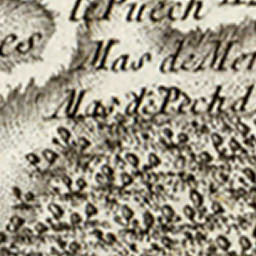 le Puech
es
Mas de Mer
Mas de Pech d